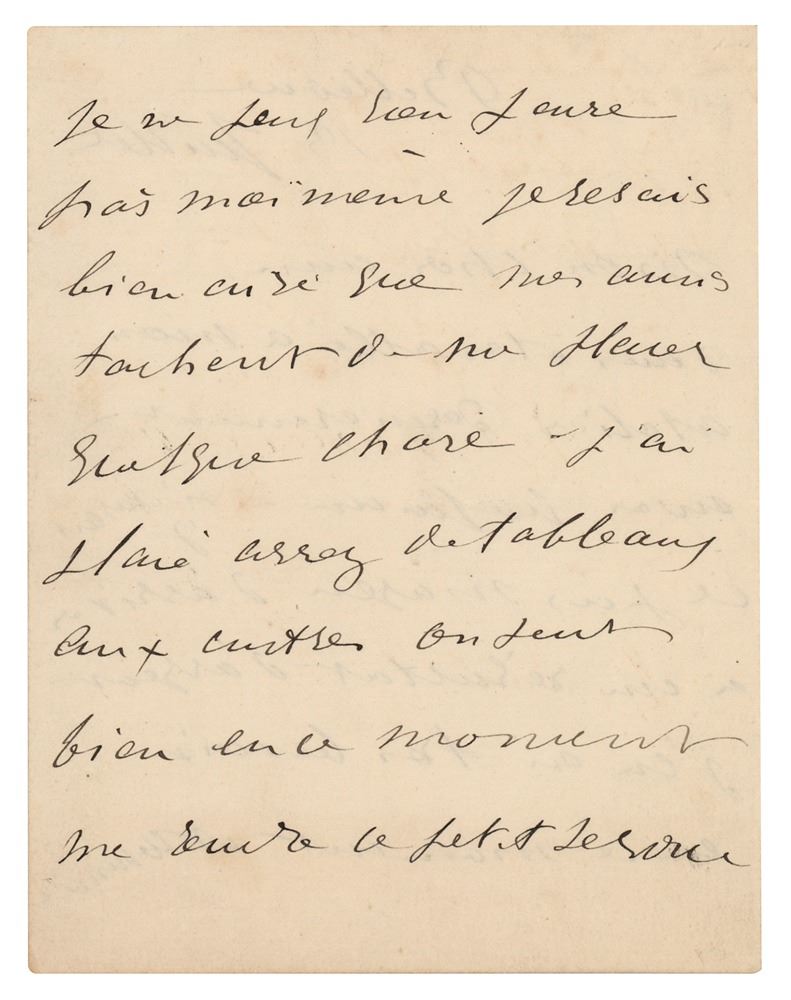 je ne peux rien faire
par moi même je serais
bien aise que mes amis
tachent de me placer
quelque chose - j'ai
placé assez de tableaux
aux autres on peut
bien en ce moment
me rendre ce petit service